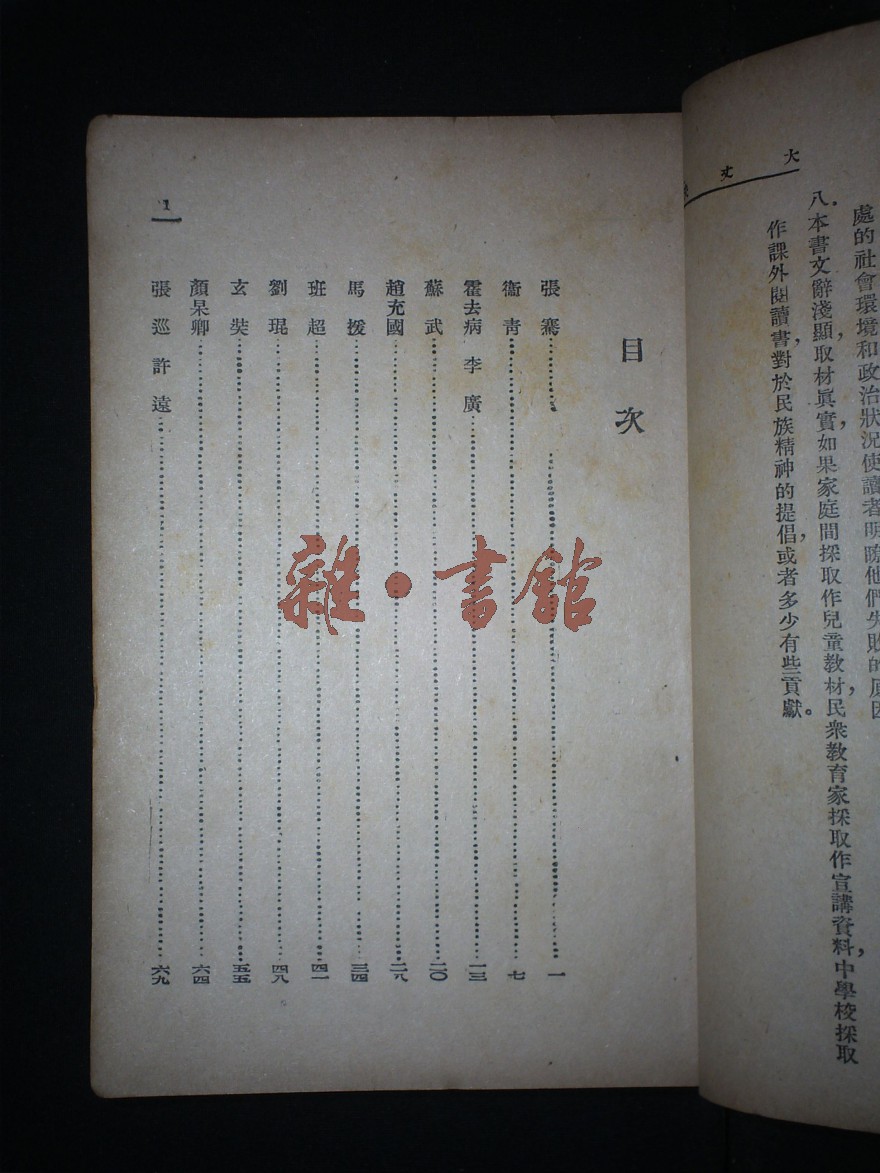 大丈
處的社會環境和政治狀況使讀者明瞭他們失敗的原因
八、本書文辭淺顯，取材眞實，如果家庭間採取作兒童教材，民衆教育家採取作宣講資料，中學校採取
作課外閱讀書，對於民族精神的提倡，或者多少有些貢獻。
目次
張騫……一
衞青……七
霍去病 李廣……一三
蘇武……二〇
趙充國……二八
馬援……三四
班超……四一
劉琨……四九
玄奘……五五
顏杲卿……六四
張巡 許遠……六九
1
雜·書館